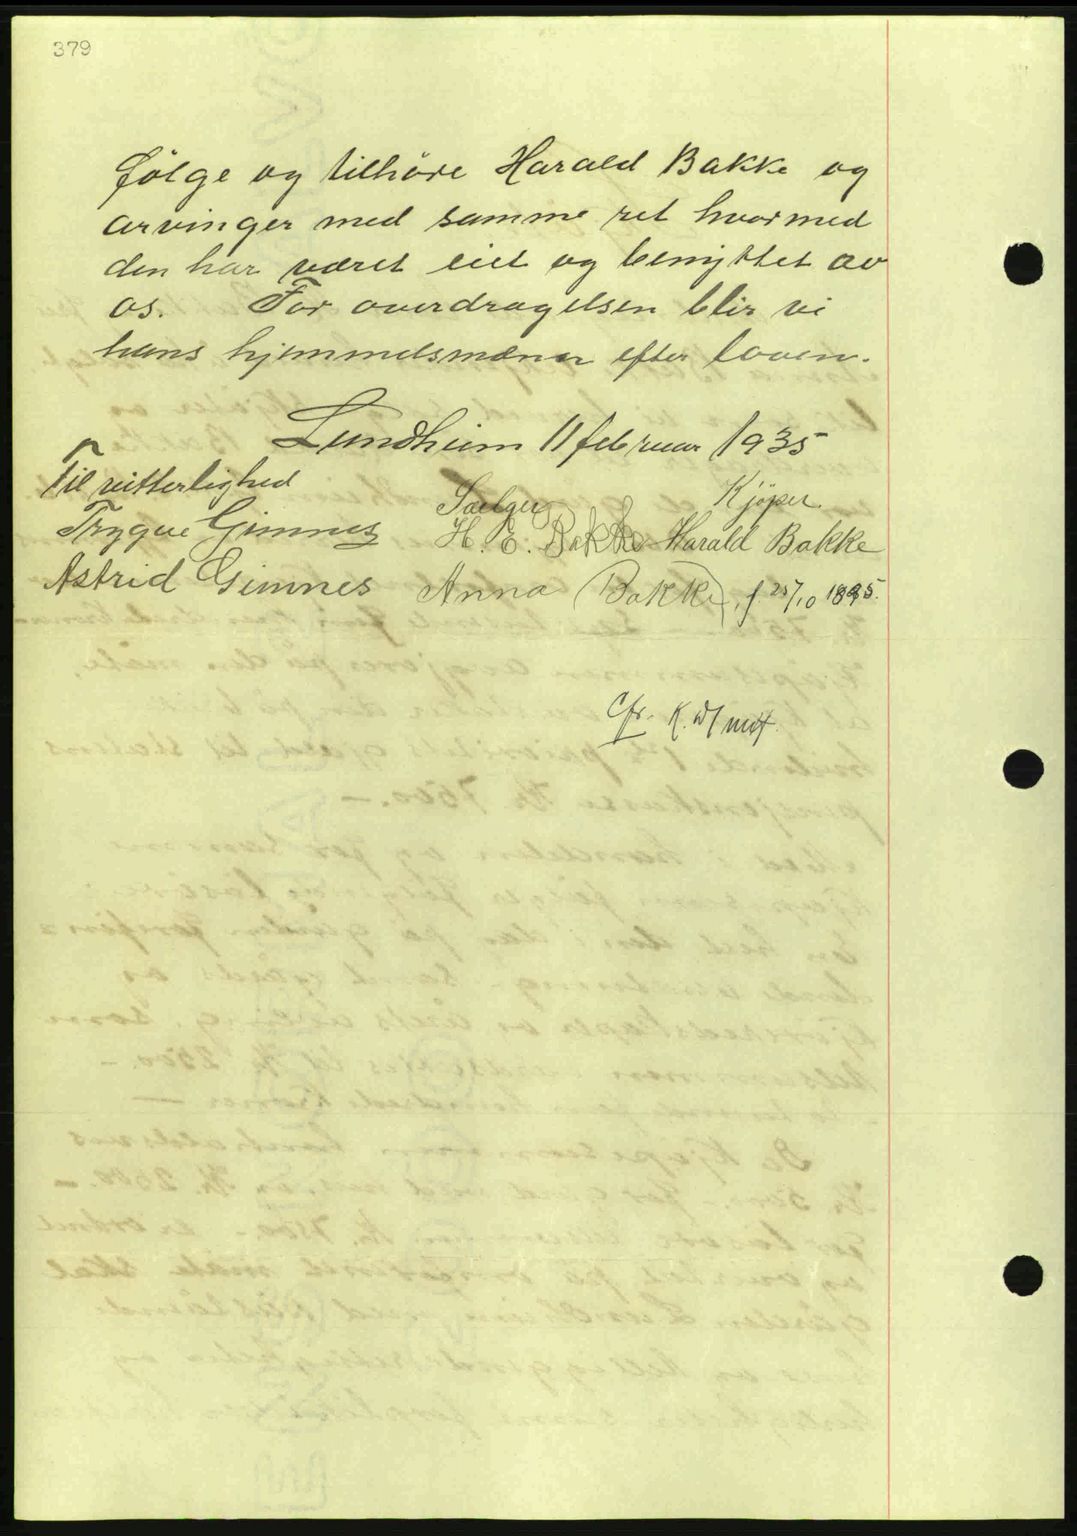 379
følge og tilhöre Harald Bakke og
arvinger med samme ret hvormed
den har været eiet og benyttet av
os. For overdragelsen blir vi
hans hjemmelsmænn efter loven.
Lundheim 11 februar 1935
Til vitterlighed
Sælger Kjöper
Trygve Gimnes H. E. Bakke Harald Bakke
Astrid Gimnes Anna Bakke, f. 25/10 1895.
Cfr.